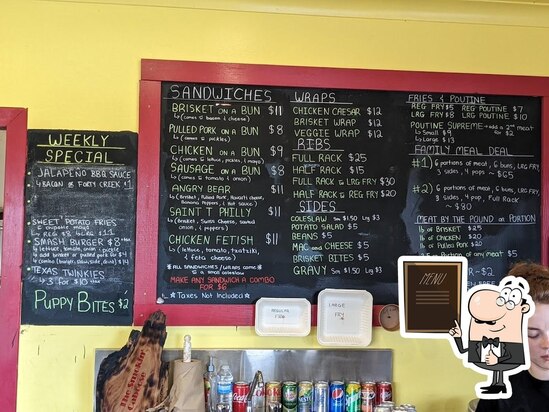 WEEKLY
SPECIAL
JALAPEÑO BBQ SAUCE
4 BACON @ FORTY CREEK $1
SWEET POTATO FRIES
+ chipotle mayo
SMASH BURGER $8
TEXAS TWINKIES
3 FOR $10
PUPPY BITES $2
SANDWICHES
BRISKET ON A BUN $11
(comes w/ bacon & cheese)
PULLED PORK ON A BUN $8
CHICKEN ON A BUN $9
(comes w/ lettuce, pickles, & mayo)
SAUSAGE ON A BUN $8
(comes w/ tomato & onion)
ANGRY BEAR $11
(Brisket, Pulled Pork, Havarti cheese,
Banana Peppers, & Hot sauce)
SAINT T PHILLY $11
(Brisket, Swiss Cheese, sauteed
onion, & peppers)
CHICKEN FETISH $11
(lettuce, tomato, tzatziki,
& feta cheese)
*ALL SANDWICHES/WRAPS COME
MAKE ANY SANDWICH A COMBO
FOR $6
☆ TAXES NOT INCLUDED ☆
WRAPS
CHICKEN CAESAR $12
BRISKET WRAP $12
VEGGIE WRAP $12
RIBS
FULL RACK $25
HALF RACK $15
FULL RACK & LRG FRY $30
HALF RACK & REG FRY $20
SIDES
COLESLAW Sm $1.50 Lrg $3
POTATO SALAD $5
BEANS $5
MAC AND CHEESE $5
BRISKET BITES $5
GRAVY Sm $1.50 Lrg $3
FRIES & POUTINE
REG FRY $5 REG POUTINE $7
LRG FRY $8 LRG POUTINE $10
POUTINE SUPREME - add a 2nd meat for $2
Small $9
Large $13
FAMILY MEAL DEAL
#1) 6 portions of meat, 6 buns, LRG FRY
3 sides, 4 pops ~ $65
#2) 6 portions of meat, 6 buns, LRG FRY
3 sides, 4 pop, Full Rack
~ $80
MEAT BY THE POUND OR PORTION
lb of BRISKET $25
lb of CHICKEN $20
lb of PULLED PORK $20
Portion of any meat $5
REGULAR
FRY
LARGE
FRY
The Smokin'
Cabinese
MENU